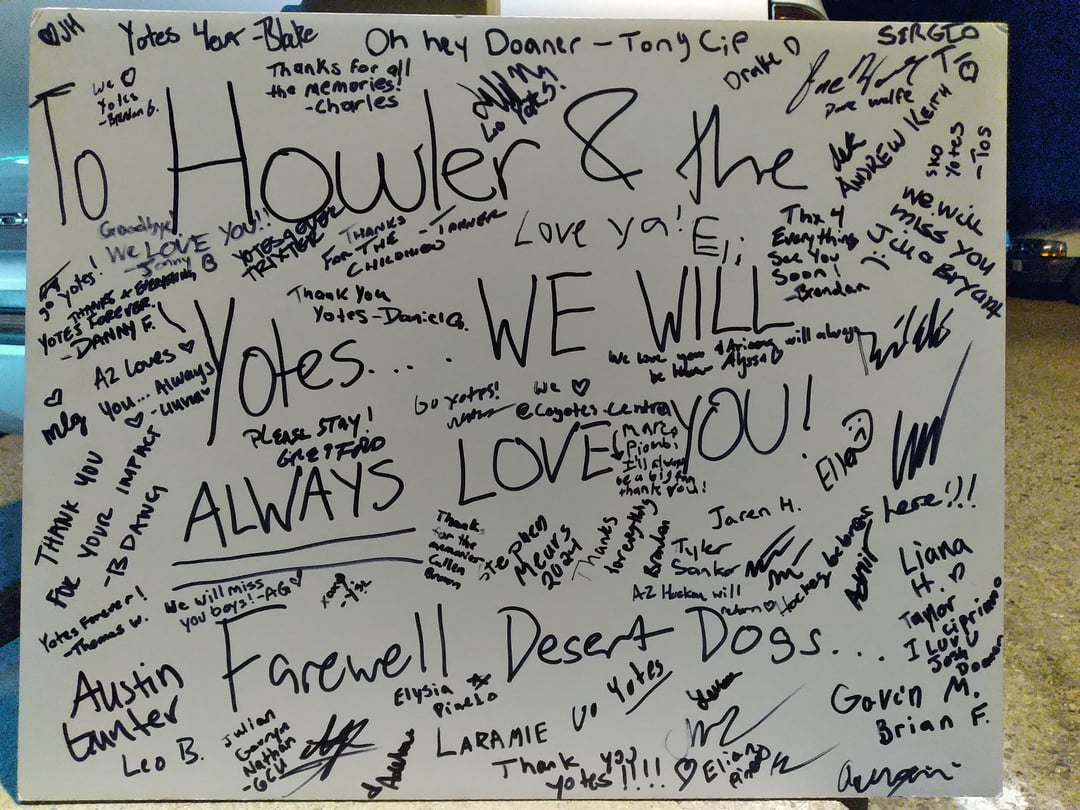 JH
Yotes 4ever -Blake
Oh hey Doaner - Tony Cip
SERGIO
We ♡
Yotes
-Brendan G.
Thanks for all
the memories!
-Charles
Go Yotes!
Drake D
Dave Wolfe
To Howler & the
ANDREW KEITH
SKO
YOTES
-TOS
Goodbye!
We LOVE YOU!!
-Jonny B
YOTES 4EVER
TRIXTER
THANKS
FOR THE
CHILDHOOD
-TANNER
Love ya! Eli
Thx 4
Everything
See You
Soon!
-Brendan
We will
miss you
:)
go yotes!
THANKS 4 EVERYTHING
YOTES FOREVER
-DANNY F.
Thank You
Yotes -Daniel G.
Yotes... WE WILL
We love you & Arizona will always
be Home Alyssa ♡
AZ Loves ♡
You... Always
♡ mlg
Go Yotes!
We ♡
@coyotes.central
PLEASE STAY!
ALWAYS LOVE YOU!
MARCO
Piombi
I'll always
be a big fan
thank you!
Ella :)
THANK YOU
FOR YOUR IMPACT ♡
-B DANG
Thanks
for the
memories
Cullen
Brown
Stephen
Mears
2024
Thanks
for everything
Brendan
Jaren H.
Tyler
Sanker
AZ Hockey will
return ♡
Hockey belongs here!!!
Liana
H. ♡
Taylor
Cipriano
I LUV U
Josh
Doaner
We will miss
you boys! -AG ♡
xoxo
Yotes Forever!
-Thomas W.
Farewell Desert Dogs...
Austin
Gunter
Leo B.
Elysia
Go Yotes
Gavin M.
Brian F.
Julian
George
Nathan
-GCU
LARAMIE
Thank you
Yotes!!!!